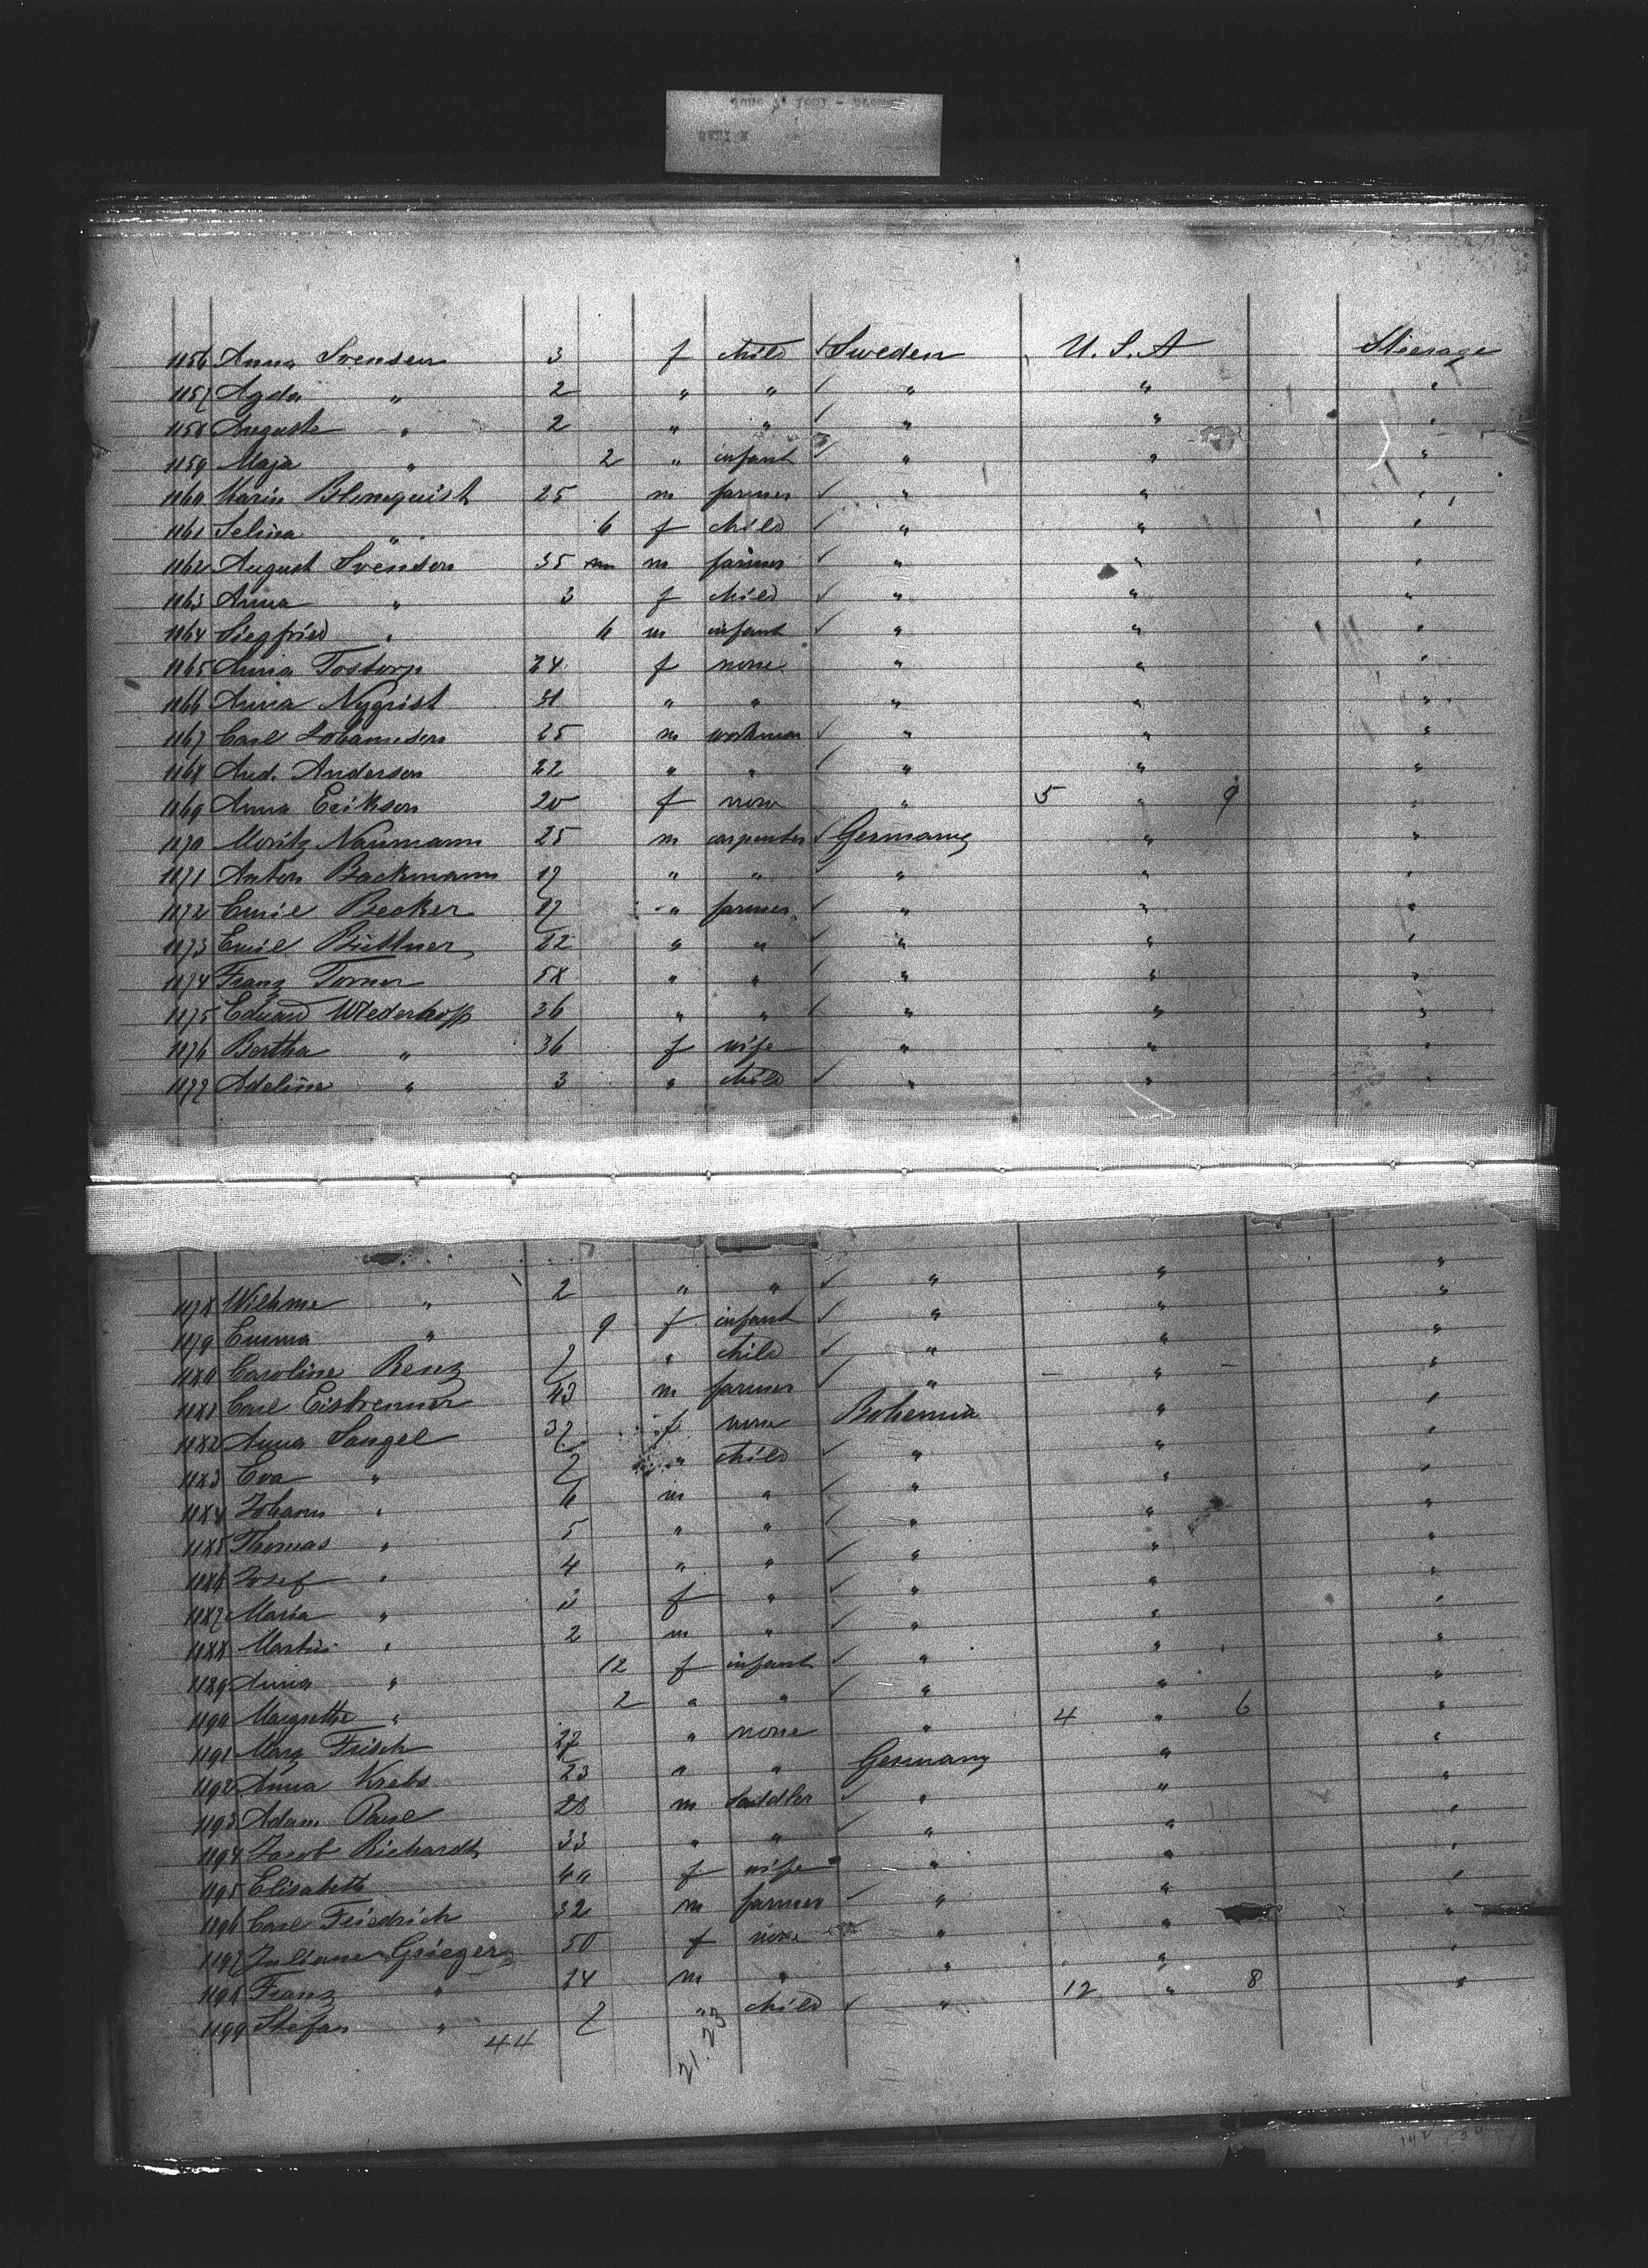 1156 Anna Svensen 3 f child Sweden U.S.A Steerage
1157 Agda " 2 " " " " "
1158 Auguste " 2 " " " " "
1159 Maja " 2 " infant " " "
1160 Karin Blomquist 25 m farmer " " "
1161 Selma " 6 f child " " "
1162 August Svenson 35 m m farmer " " "
1163 Anna " 3 f child " " "
1164 Siegfried " 6 m infant " " "
1165 Anna Tostorp 24 f none " " "
1166 Anna Nyqvist 31 " " " " "
1167 Carl Johannesen 25 m workman " " "
1168 And. Anderson 22 " " " " "
1169 Anna Erikson 20 f none " 5 " 9 "
1170 Moritz Naumann 25 m carpenter Germany " "
1171 Anton Backmann 17 " " " " "
1172 Emil Becker 17 " farmer " " "
1173 Emil Büttner 22 " " " " "
1174 Franz Torner 58 " " " " "
1175 Eduard Wiederhoff 36 " " " " "
1176 Bertha " 36 f wife " " "
1177 Adeline " 3 " child " " "
1178 Wilhme " 2 " " " " "
1179 Emma " 9 f infant " " "
1180 Caroline Renz 7 " child " " "
1181 Carl Eisbrenner 43 m farmer " " "
1182 Anna Sangel 37 f none Bohemia " "
1183 Eva " 7 " child " " "
1184 Johann " 6 m " " " "
1185 Thomas " 5 " " " " "
1186 Josef " 4 " " " " "
1187 Maria " 3 f " " " "
1188 Martin " 2 m " " " "
1189 Anna " 12 f infant " " "
1190 Margrethe " 2 " " " " "
1191 Marg Frisch 27 " none " 4 " 6 "
1192 Anna Krebs 23 " " Germany " "
1193 Adam Paul 28 m saddler " " "
1194 Jacob Richardt 33 " " " " "
1195 Elisabeth 40 f wife " " "
1196 Carl Friedrich 32 m farmer " " "
1197 Juliane Grieger 50 f none " " "
1198 Franz " 24 m " " " "
1199 Stefan " 7 " child " 12 " 8 "
44 21.23